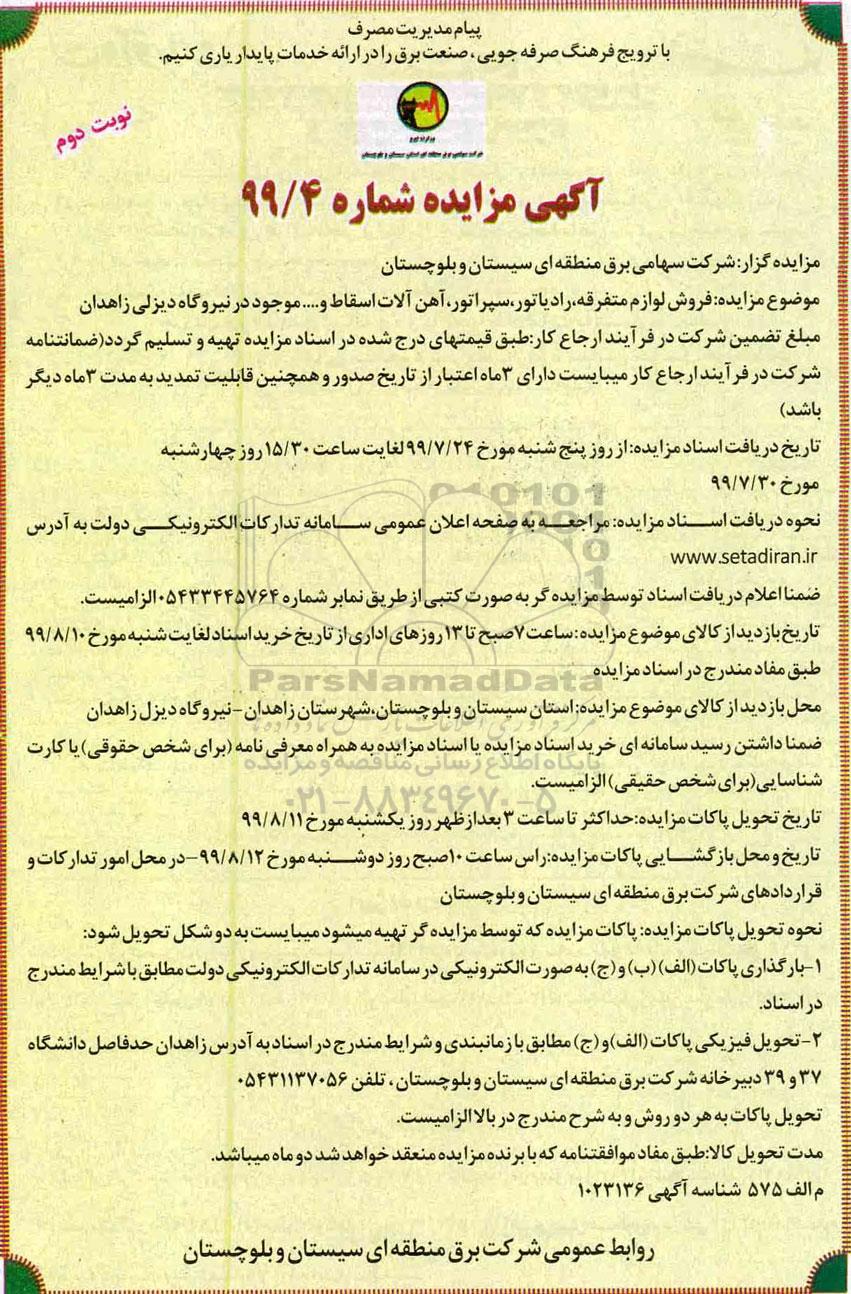 پیام مدیریت مصرف
با ترویج فرهنگ صرفه جویی ، صنعت برق را در ارائه خدمات پایدار یاری کنیم.
نوبت دوم
وزارت نیرو
شرکت سهامی برق منطقه ای استان سیستان و بلوچستان
آگهی مزایده شماره ۹۹/۴
مزایده گزار: شرکت سهامی برق منطقه ای سیستان و بلوچستان
موضوع مزایده: فروش لوازم متفرقه، رادیاتور، سپراتور، آهن آلات اسقاط و.... موجود در نیروگاه دیزلی زاهدان
مبلغ تضمین شرکت در فرآیند ارجاع کار: طبق قیمتهای درج شده در اسناد مزایده تهیه و تسلیم گردد(ضمانتنامه
شرکت در فرآیند ارجاع کار میبایست دارای ۳ماه اعتبار از تاریخ صدور و همچنین قابلیت تمدید به مدت ۳ماه دیگر
باشد)
تاریخ دریافت اسناد مزایده: از روز پنج شنبه مورخ ۹۹/۷/۲۴ لغایت ساعت ۱۵/۳۰ روز چهارشنبه
مورخ ۹۹/۷/۳۰
نحوه دریافت اسناد مزایده: مراجعه به صفحه اعلان عمومی سامانه تدارکات الکترونیکی دولت به آدرس
www.setadiran.ir
ضمنا اعلام دریافت اسناد توسط مزایده گر به صورت کتبی از طریق نمابر شماره ۰۵۴۳۳۴۴۵۷۶۴ الزامیست.
تاریخ بازدید از کالای موضوع مزایده: ساعت ۷صبح تا ۱۳ روزهای اداری از تاریخ خرید اسناد لغایت شنبه مورخ ۹۹/۸/۱۰
طبق مفاد مندرج در اسناد مزایده
ParsNamadData
محل بازدید از کالای موضوع مزایده: استان سیستان و بلوچستان، شهرستان زاهدان - نیروگاه دیزل زاهدان
ضمنا داشتن رسید سامانه ای خرید اسناد مزایده یا اسناد مزایده به همراه معرفی نامه (برای شخص حقوقی) یا کارت
پایگاه اطلاع رسانی مناقصه و مزایده
شناسایی(برای شخص حقیقی) الزامیست.
۰۲۱-۸۸۳۴۹۶۷۰-۵
تاریخ تحویل پاکات مزایده: حداکثر تا ساعت ۳ بعدازظهر روز یکشنبه مورخ ۹۹/۸/۱۱
تاریخ و محل بازگشایی پاکات مزایده: راس ساعت ۱۰صبح روز دوشنبه مورخ ۹۹/۸/۱۲ - در محل امور تدارکات و
قراردادهای شرکت برق منطقه ای سیستان و بلوچستان
نحوه تحویل پاکات مزایده: پاکات مزایده که توسط مزایده گر تهیه میشود میبایست به دو شکل تحویل شود:
۱-بارگذاری پاکات (الف) (ب) و (ج) به صورت الکترونیکی در سامانه تدارکات الکترونیکی دولت مطابق با شرایط مندرج
در اسناد.
۲-تحویل فیزیکی پاکات (الف) و (ج) مطابق با زمانبندی و شرایط مندرج در اسناد به آدرس زاهدان حدفاصل دانشگاه
۳۷ و ۳۹ دبیرخانه شرکت برق منطقه ای سیستان و بلوچستان ، تلفن ۰۵۴۳۱۱۳۷۰۵۶
تحویل پاکات به هر دو روش و به شرح مندرج در بالا الزامیست.
مدت تحویل کالا: طبق مفاد موافقتنامه که با برنده مزایده منعقد خواهد شد دو ماه میباشد.
م الف ۵۷۵ شناسه آگهی ۱۰۲۳۱۳۶
روابط عمومی شرکت برق منطقه ای سیستان و بلوچستان